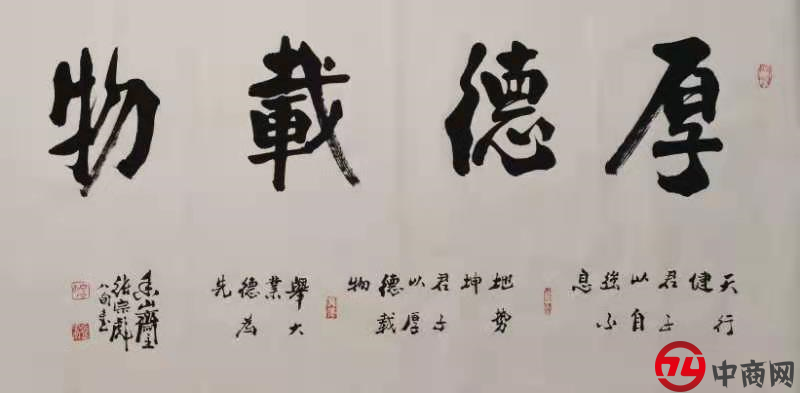 厚德載物
天行
健
君子
以自
強不
息
地勢
坤
君子
以厚
德載
物
舉大
業
德為
先
香山齋主
張宗彪
八旬書
中商网